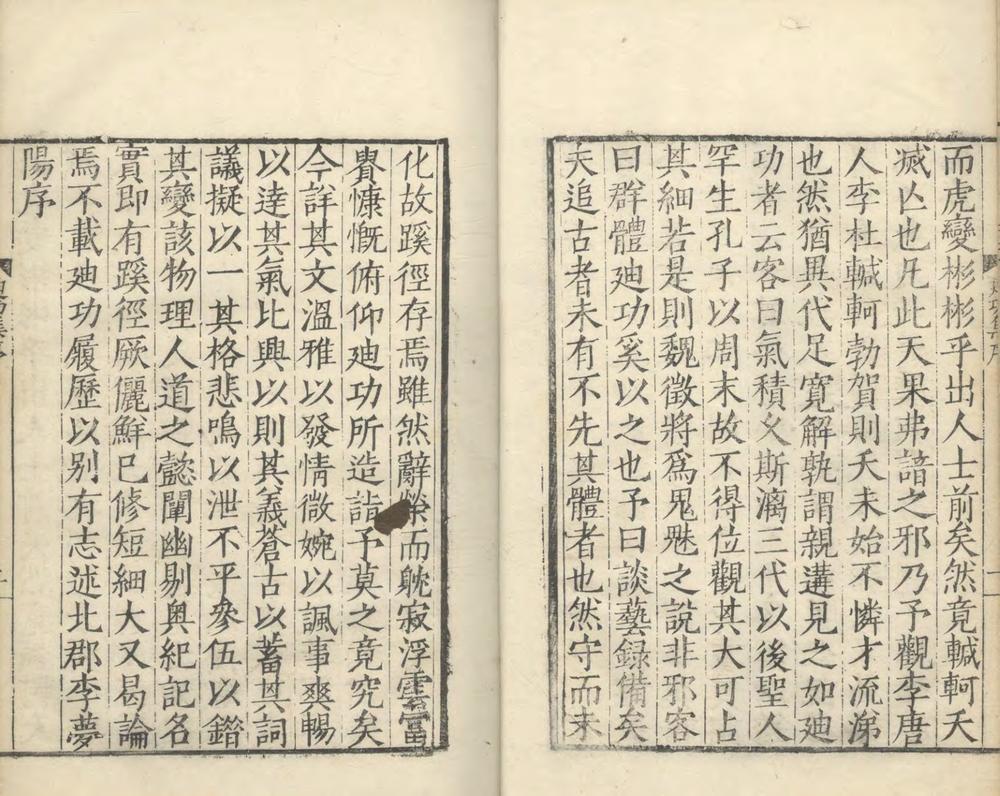 而虎變彬彬乎出人士前矣然竟轗軻夭
滅亾也凡此天果弗諳之邪乃予觀李唐
人李杜轗軻勃賀則夭未始不憐才流涕
也然猶異代足寬解孰謂親遘見之如廸
功者云客曰氣積乂斯漓三代以後聖人
罕生孔子以周末故不得位觀其大可占
其細若是則魏徵將爲鬼魅之說非邪客
曰群體廸功奚以之也予曰談藝録備矣
夫追古者未有不先其體者也然守而未
化故蹊徑存焉雖然辭榮而躭寂浮雲富
貴慷慨俯仰廸功所造詣予莫之竟究矣
今詳其文溫雅以發情微婉以諷事爽暢
以達其氣比興以則其義蒼古以蓄其詞
議擬以一其格悲鳴以泄不平參伍以錯
其變該物理人道之懿闡幽剔奧紀記名
實即有蹊徑厥儷鮮已修短細大又曷論
焉不載廸功履歷以别有志述北郡李夢
陽序